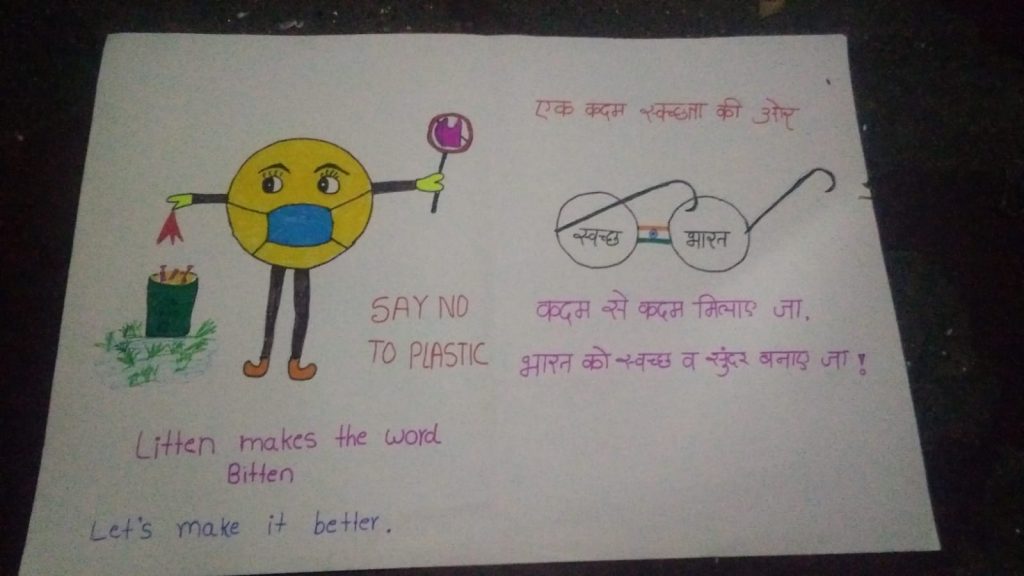 एक कदम स्वच्छता की ओर
स्वच्छ भारत
SAY NO
TO PLASTIC
कदम से कदम मिलाए जा.
भारत को स्वच्छ व सुंदर बनाए जा!
Litten makes the word
Bitten
Let's make it better.